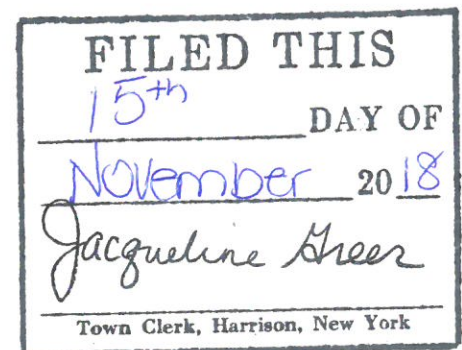 FILED THIS
15th
DAY OF
November 2018
Jacqueline Greer
Town Clerk, Harrison, New York